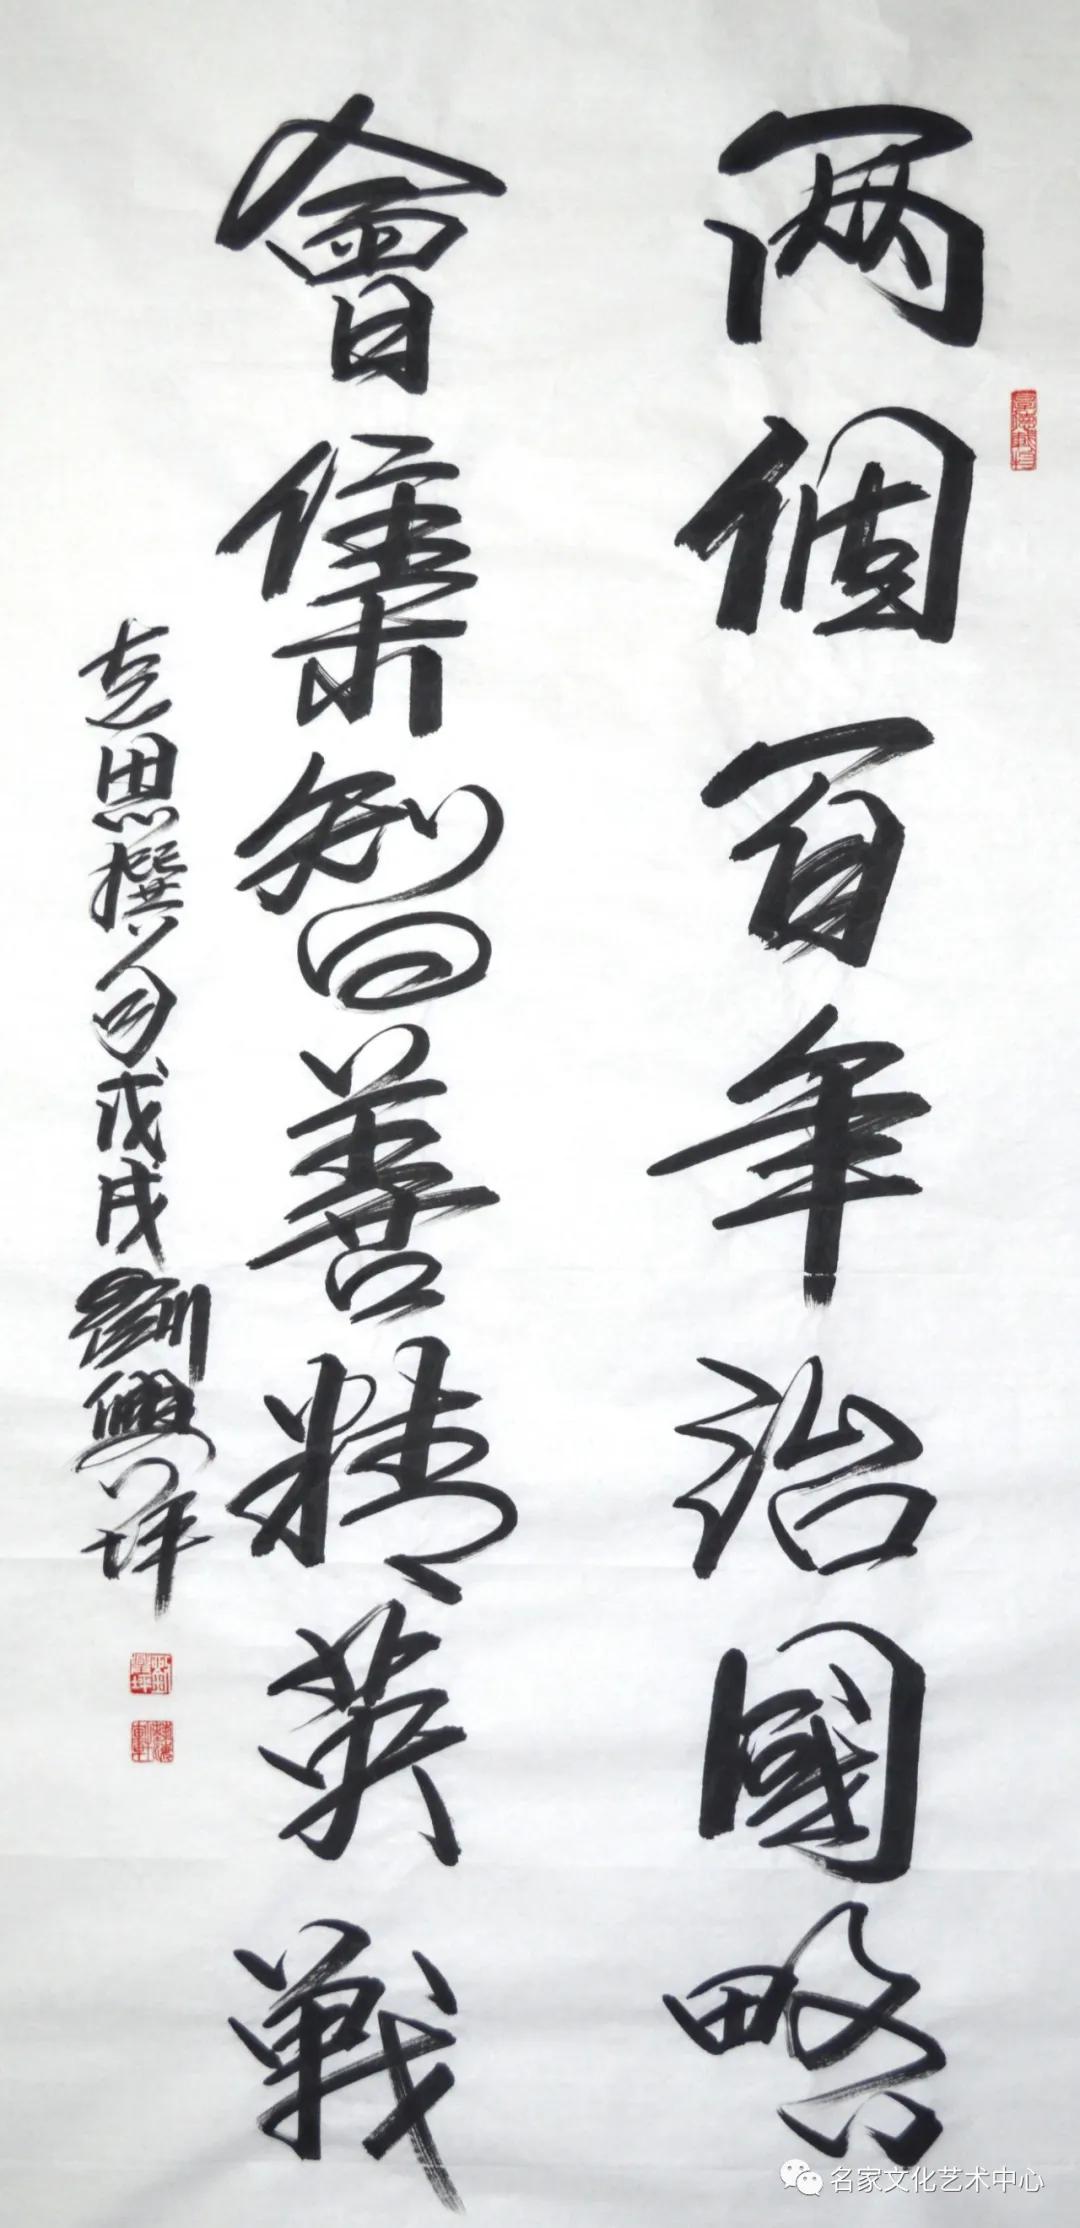 两個百年治國略
會集智善精英戰
思撰句戊戌劉興坪
名家文化艺术中心